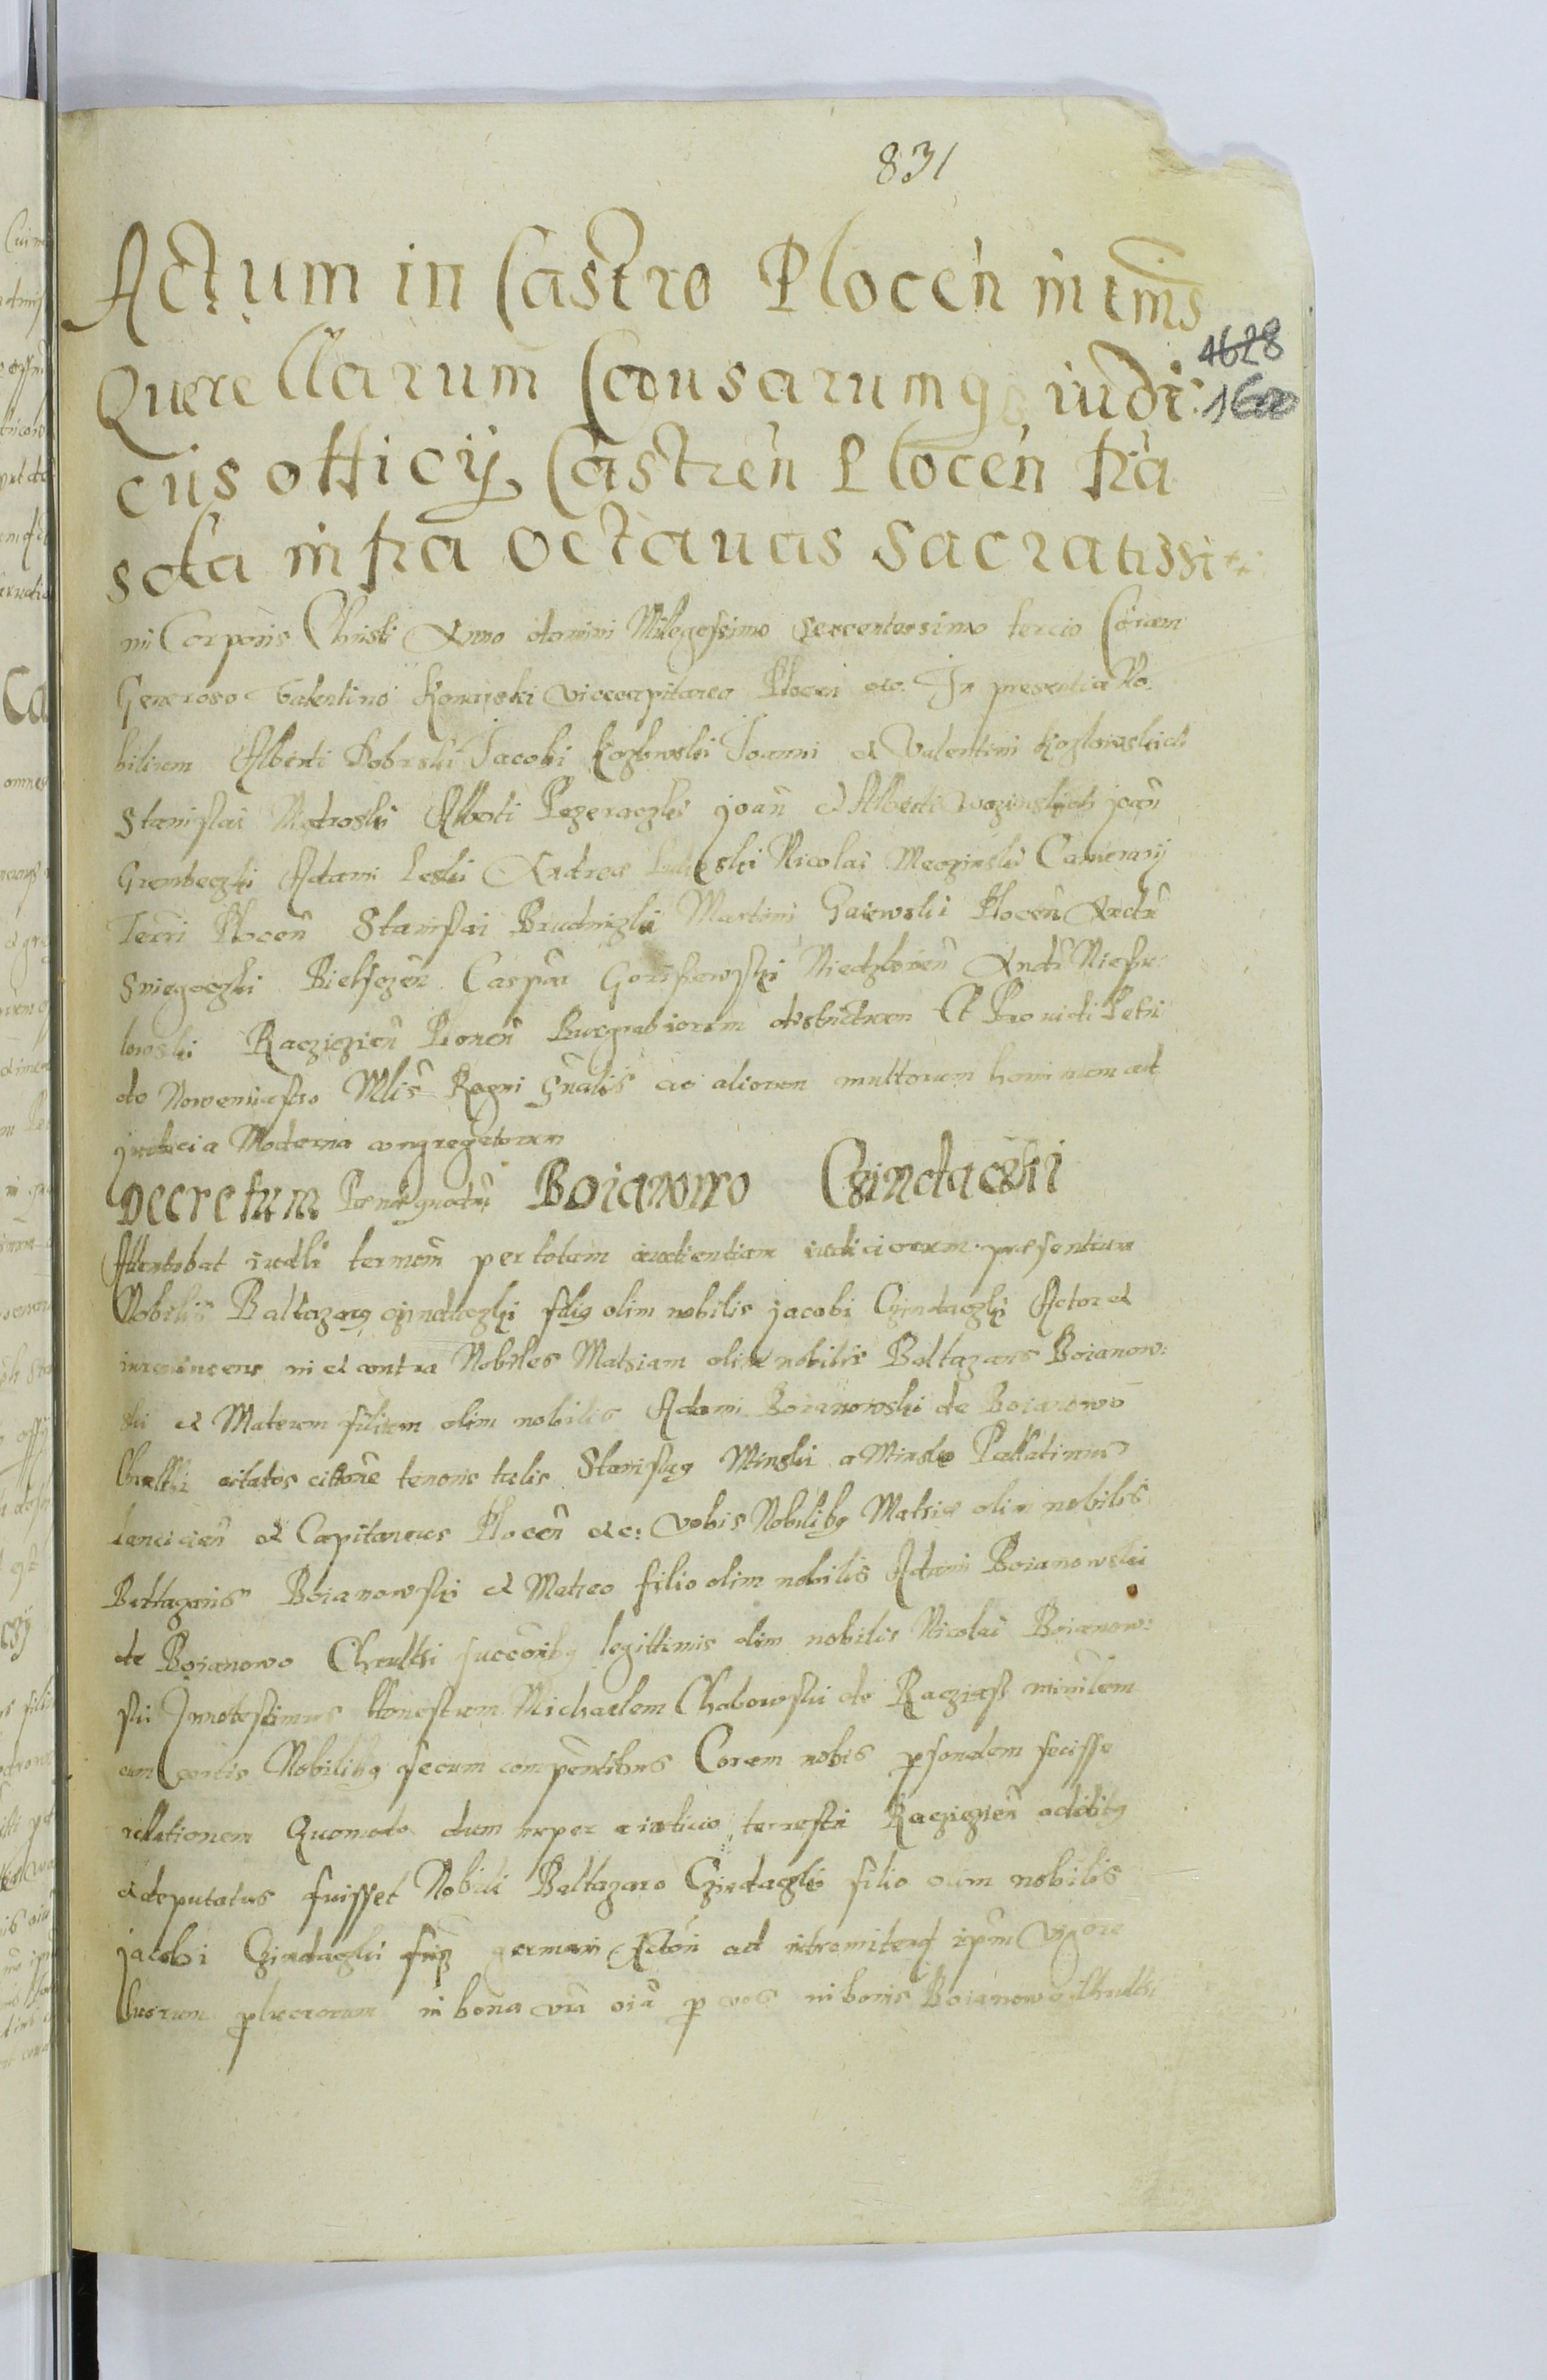 831
Actum in Castro Plocen̄ in tm̄s
4628
Querellarum Causarumq iudi:
1600
cijs officij Castren̄ Plocen̄ fr̄a
sola infra octauas sacratissi
mi Corporis Christi Anno domini Milegessimo sexcentessimo tercio Coram
Generoso Valentino Konarski vicecapitaneo Plocen etc. In presentia No
bilium Alberti Dobrski Jacobi Kozlowski Joanni et Valentini Kozlowskich
Stanislai Alberti joan̄ et Alberti joan̄
Grembeczki Adami Leski Andrea Nicolai Camerarij
Terri Plocen̄ Stanislai Martini Gaiewski Plocen̄ Andr̄
Sniegoczki Bielscen Caspar Niedzborien̄ Andr̄
lowski Racziązien̄ Plonen̄ Burgrabiorum districtuum Et Prouidi Petri
de Nowemiastro Mlis Regni Gn̄alis ac aliorum multorum hominum ad
judicia Moderna congregatorum
Decretum Boianowo Czindaczki
Attentabat iudli termom̄ per totam audientiam iudiciorum presentium
Nobilis Baltazarq Czindaczki filiq olim nobilis jacobi Czindaczki Actor et
in et contra Nobiles Matsiam olim nobilis Baltazaris Boianow:
ski et Mateum filium olim nobilis Adami Boianowski de Boianowo
Chrulki citatos citōne tenoris talis Stanislaq Minski a Minsko Pallatinus
Lancicien̄ et Capitaneus Plocen̄ etc: vobis Nobilibq Matsie olim nobilis
Baltazaris Boianowski et Matheo filio olim nobilis Adami Boianowski
de Boianowo Chrulki succōribq legittimis olim nobilis Nicolai Boianow:
ski Innotescimus Honestum Michaelem Chabowski de Racziąsz minilem
cum certis Nobilibq secum compentibus Coram nobis psondem fecisse
rellationem Quomodo dum nuper a iudicio terrestri Racziązien̄ additq
et deputatus fuisset Nobili Baltazaro Czindaczki filio olim nobilis
jacobi Czindaczki germani ad intromitend ipm̄ vigore
lucrorum in bona oīa p vos in bonis Boianowo Chrulki